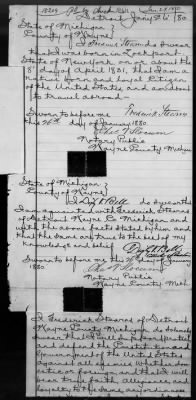 Detroit Jany 26 1880
State of Michigan
County of Wayne
I Frederick Stearns do swear
that I was born in Lockport
State of New York on or about the
8th day of April 1831, that I am a
native born and loyal Citizen
of the United States and about
to travel abroad—
Frederick Stearns
Sworn to before me
this 26th day of January 1880.
Notary Public
Wayne County Michigan
State of Michigan
County of Wayne
do swear that
I am acquainted with Frederick Stearns
of Detroit Wayne Co Michigan and
with the above facts stated by him and
that the same are true to the best of my
knowledge and belief
Sworn to before me this 26th day of January
1880.
Notary Public
Wayne County Mich
I Frederick Stearns of Detroit
Wayne County Michigan do solemnly
swear that I will support protect
and defend the Constitution and
Government of the United States
against all enemies whether domestic
or foreign and that I will
bear true faith allegiance and
loyalty to the same